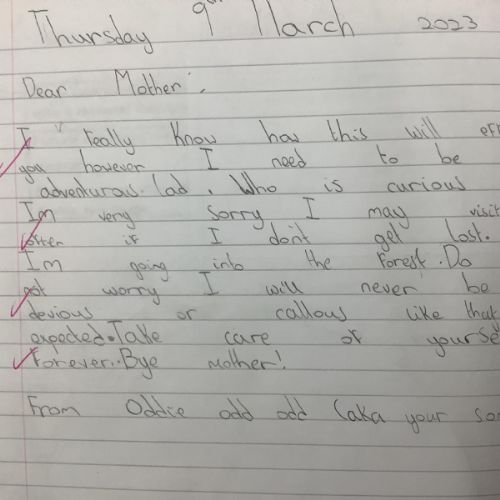 Thursday 9th March 2023
Dear Mother,
I really know how this will
you however I need to be
adventurous lad. Who is curious
Im very sorry I may visit
often if I don't get lost.
Im going into the Forest. Do
not worry I will never be
devious or callous like that
expected. Take care of
Forever. Bye mother!
From Oddie odd odd (aka your